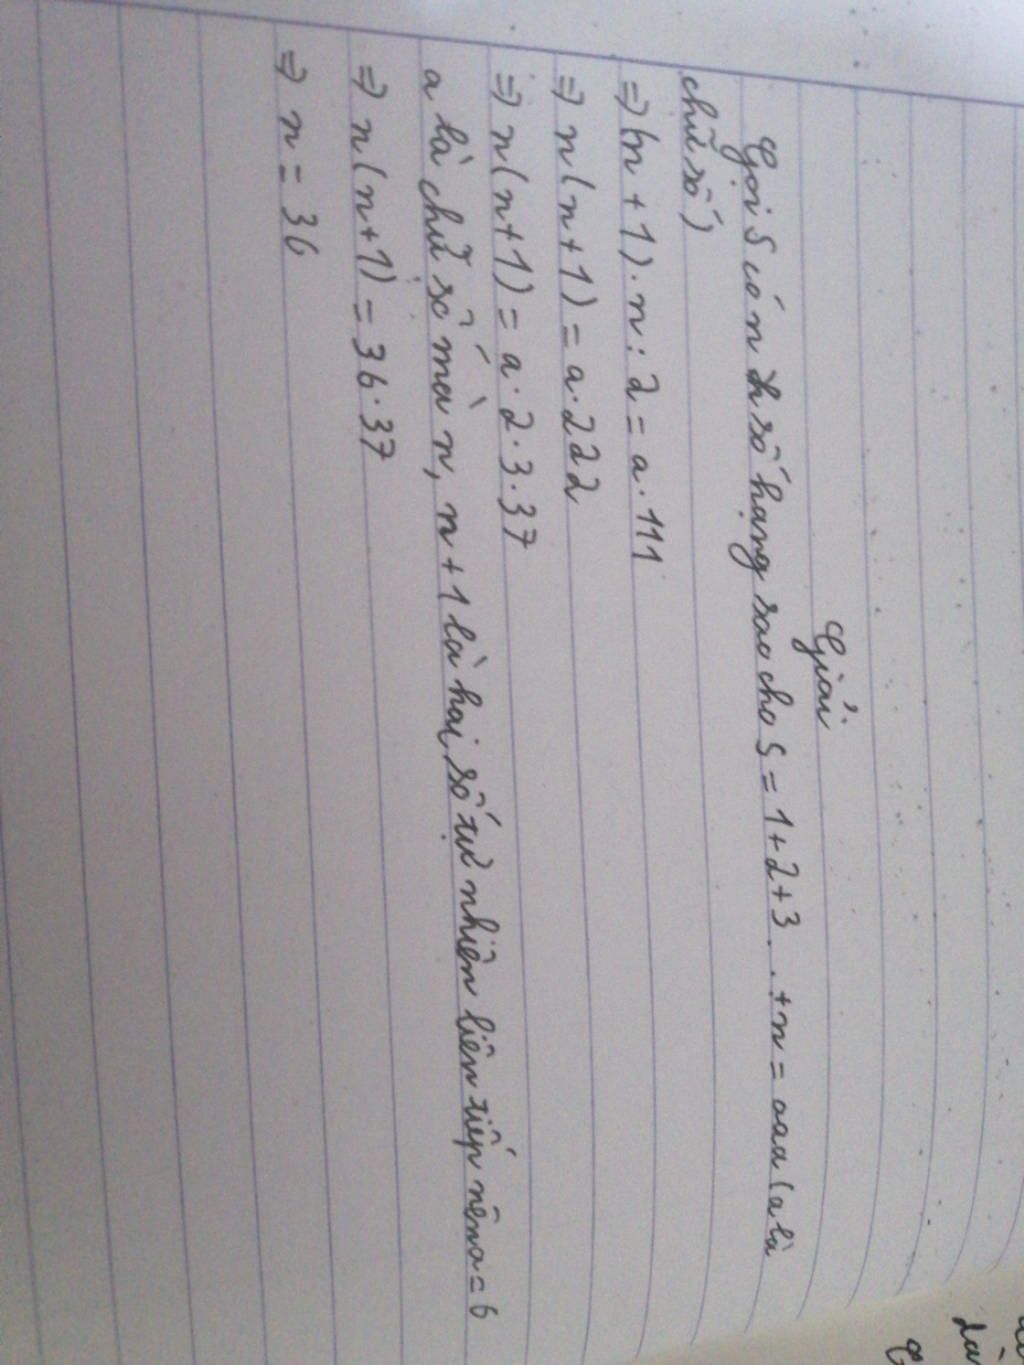 Giải
Gọi S có n số hạng sao cho S = 1+2+3 ...+n = aaa (a là
chữ số)
=> (n + 1).n : 2 = a.111
=> n(n+1) = a.222
=> n(n+1) = a.2.3.37
a là chữ số mà n, n+1 là hai số tự nhiên liên tiếp nên a = 6
=> n(n+1) = 36.37
=> n = 36